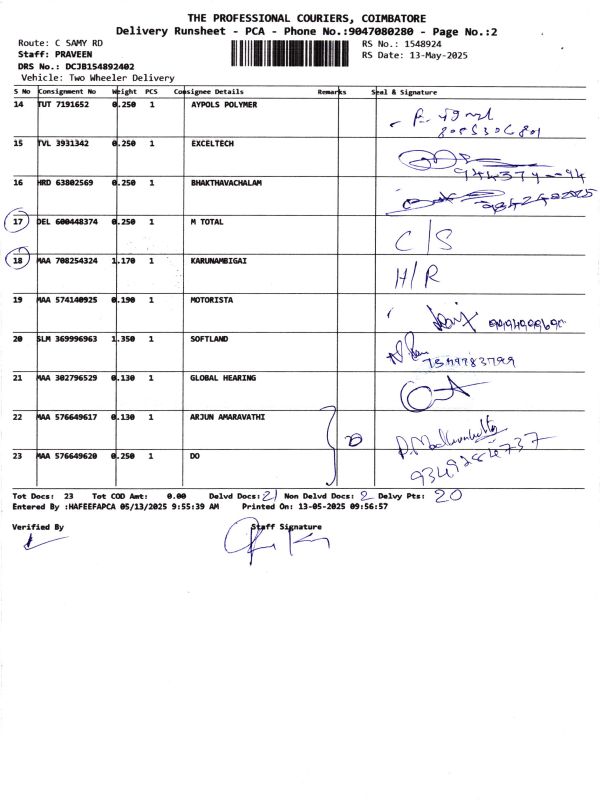 THE PROFESSIONAL COURIERS, COIMBATORE
Delivery Runsheet - PCA - Phone No.:9047080280 - Page No.:2
Route: C SAMY RD
RS No.: 1548924
Staff: PRAVEEN
RS Date: 13-May-2025
DRS No.: DCJB154892402
Vehicle: Two Wheeler Delivery
S No Consignment No Weight PCS Consignee Details Remarks Seal & Signature
14 TUT 7191652 0.250 1 AYPOLS POLYMER
15 TVL 3931342 0.250 1 EXCELTECH
16 HRD 63802569 0.250 1 BHAKTHAVACHALAM
17 DEL 600448374 0.250 1 M TOTAL C/S
18 MAA 708254324 1.170 1 KARUNAMBIGAI H/R
19 MAA 574140925 0.190 1 MOTORISTA
20 SLM 369996963 1.350 1 SOFTLAND
21 MAA 302796529 0.130 1 GLOBAL HEARING
22 MAA 576649617 0.130 1 ARJUN AMARAVATHI
23 MAA 576649620 0.250 1 DO
Tot Docs: 23 Tot COD Amt: 0.00 Delvd Docs: 21 Non Delvd Docs: 2 Delvy Pts: 20
Entered By :HAFEEFAPCA 05/13/2025 9:55:39 AM Printed On: 13-05-2025 09:56:57
Verified By Staff Signature